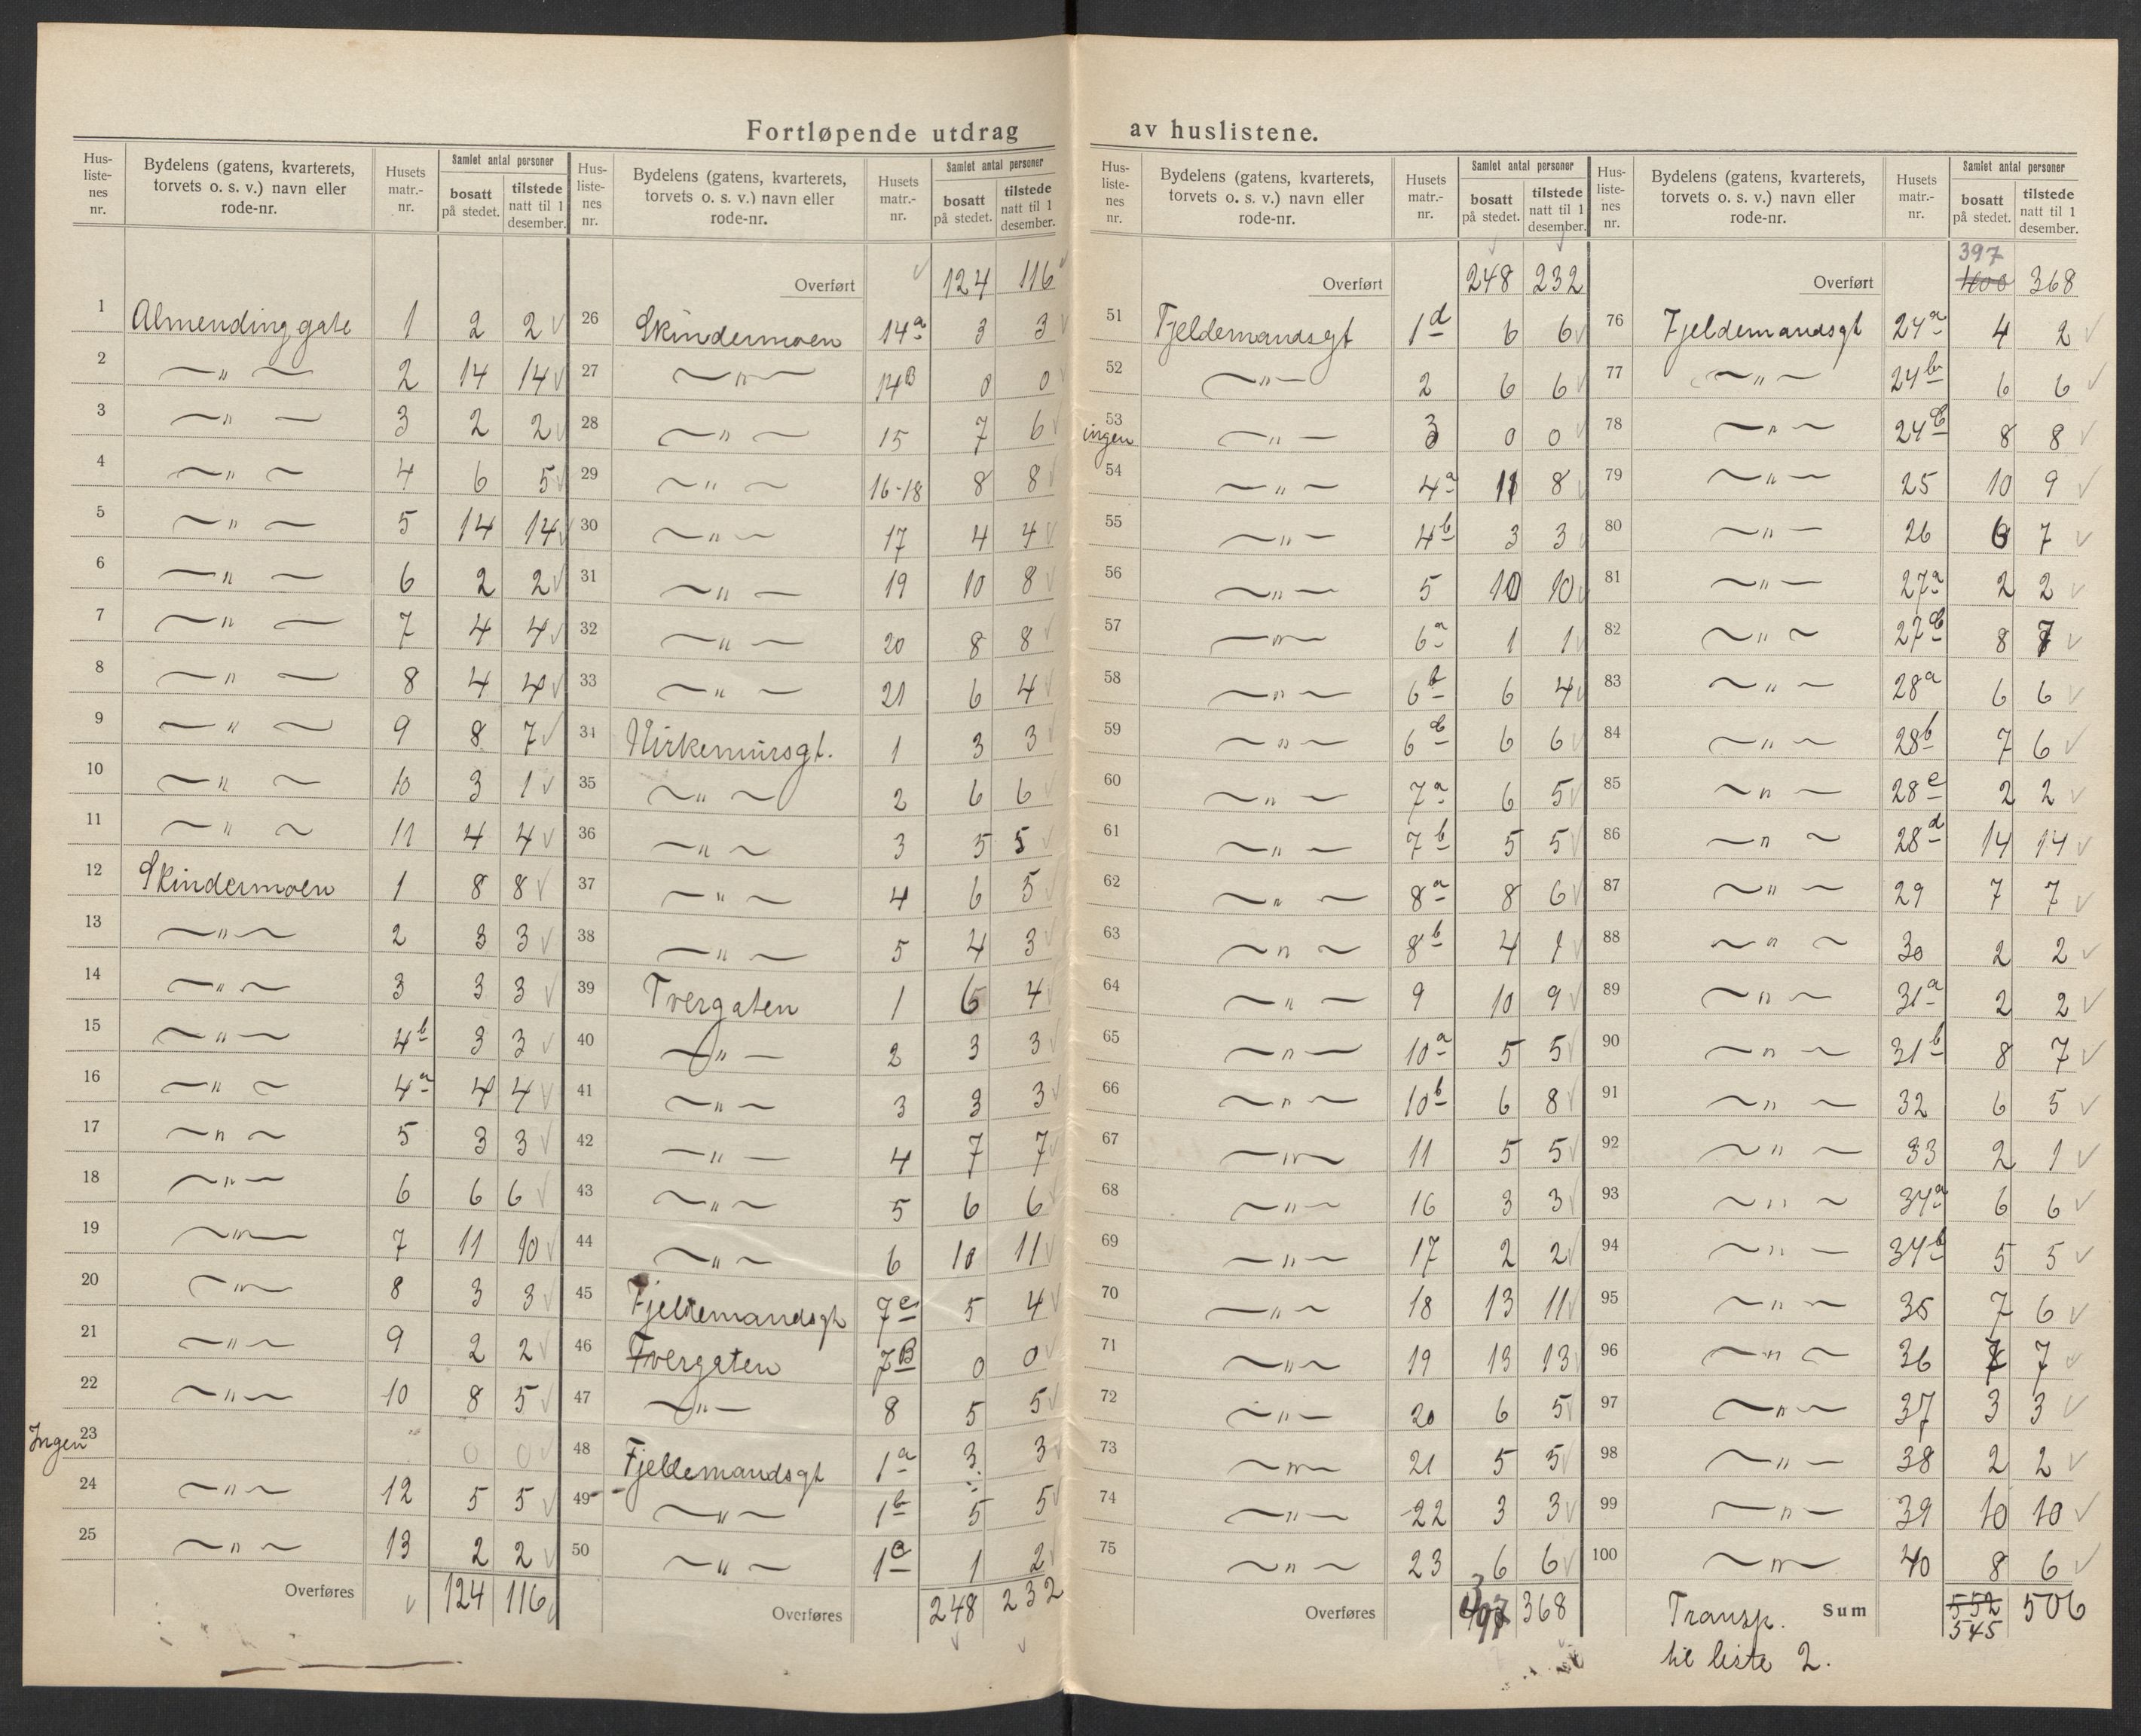 Fortløpende utdrag av huslistene.
Hus-listenes nr. | Bydelens (gatens, kvarterets, torvets o. s. v.) navn eller rode-nr. | Husets matr.-nr. | Samlet antal personer bosatt på stedet. | tilstede natt til 1 desember.
1 Almending gate 1 2 2 ✓
2 —„— 2 14 14 ✓
3 —„— 3 2 2 ✓
4 —„— 4 6 5 ✓
5 —„— 5 14 14 ✓
6 —„— 6 2 2 ✓
7 —„— 7 4 4 ✓
8 —„— 8 4 4 ✓
9 —„— 9 8 7 ✓
10 —„— 10 3 1 ✓
11 —„— 11 4 4 ✓
12 Skindermoen 1 8 8 ✓
13 —„— 2 3 3 ✓
14 —„— 3 3 3 ✓
15 —„— 4b 3 3 ✓
16 —„— 4a 4 4 ✓
17 —„— 5 3 3 ✓
18 —„— 6 6 6 ✓
19 —„— 7 11 10 ✓
20 —„— 8 3 3 ✓
21 —„— 9 2 2 ✓
22 —„— 10 8 5 ✓
Ingen 23 0 0 ✓
24 —„— 12 5 5 ✓
25 —„— 13 2 2 ✓
Overføres ✓ 124 116 ✓
Hus-listenes nr. | Bydelens (gatens, kvarterets, torvets o. s. v.) navn eller rode-nr. | Husets matr.-nr. | Samlet antal personer bosatt på stedet. | tilstede natt til 1 desember.
Overført ✓ 124 116 ✓
26 Skindermoen 14a 3 3 ✓
27 —„— 14B 0 0 ✓
28 —„— 15 7 6 ✓
29 —„— 16-18 8 8 ✓
30 —„— 17 4 4 ✓
31 —„— 19 10 8 ✓
32 —„— 20 8 8 ✓
33 —„— 21 6 4 ✓
34 1 3 3 ✓
35 —„— 2 6 6 ✓
36 —„— 3 5 5 ✓
37 —„— 4 6 5 ✓
38 —„— 5 4 3 ✓
39 Tvergaten 1 6 4 ✓
40 —„— 2 3 3 ✓
41 —„— 3 3 3 ✓
42 —„— 4 7 7 ✓
43 —„— 5 6 6 ✓
44 —„— 6 10 11 ✓
45 Fjeldemandsgt 7 5 4 ✓
46 Tvergaten 7B 0 0 ✓
47 —„— 8 5 5 ✓
48 Fjeldemandsgt 1a 3 3
49 —„— 1b 5 5 ✓
50 —„— 1c 1 2 ✓
Overføres 248 232
Hus-listenes nr. | Bydelens (gatens, kvarterets, torvets o. s. v.) navn eller rode-nr. | Husets matr.-nr. | Samlet antal personer bosatt på stedet. | tilstede natt til 1 desember.
Overført 248 232
51 Fjeldemandsgt 1d 6 6 ✓
52 —„— 2 6 6 ✓
53 ingen —„— 3 0 0 ✓
54 —„— 4a 11 8 ✓
55 —„— 4b 3 3 ✓
56 —„— 5 10 10 ✓
57 —„— 6a 1 1 ✓
58 —„— 6b 6 4 ✓
59 —„— 6c 6 6 ✓
60 —„— 7a 6 5 ✓
61 —„— 7b 5 5 ✓
62 —„— 8a 8 6 ✓
63 —„— 8b 4 1 ✓
64 —„— 9 10 9 ✓
65 —„— 10a 5 5 ✓
66 —„— 10b 6 8 ✓
67 —„— 11 5 5 ✓
68 —„— 16 3 3 ✓
69 —„— 17 2 2 ✓
70 —„— 18 13 11 ✓
71 —„— 19 13 13 ✓
72 —„— 20 6 5 ✓
73 —„— 21 5 5 ✓
74 —„— 22 3 3 ✓
75 —„— 23 6 6 ✓
Overføres 397 368
Hus-listenes nr. | Bydelens (gatens, kvarterets, torvets o. s. v.) navn eller rode-nr. | Husets matr.-nr. | Samlet antal personer bosatt på stedet. | tilstede natt til 1 desember.
397
Overført 400 368
76 Fjeldemandsgt 24a 4 2 ✓
77 —„— 24b 6 6 ✓
78 —„— 24c 8 8 ✓
79 —„— 25 10 9 ✓
80 —„— 26 6 7 ✓
81 —„— 27a 2 2 ✓
82 —„— 27b 8 7 ✓
83 —„— 28a 6 6 ✓
84 —„— 28b 7 6 ✓
85 —„— 28c 2 2 ✓
86 —„— 28d 14 14 ✓
87 —„— 29 7 7 ✓
88 —„— 30 2 2 ✓
89 —„— 31a 2 2 ✓
90 —„— 31b 8 7 ✓
91 —„— 32 6 5 ✓
92 —„— 33 2 1 ✓
93 —„— 34a 6 6 ✓
94 —„— 34b 5 5 ✓
95 —„— 35 7 6 ✓
96 —„— 36 7 7 ✓
97 —„— 37 3 3 ✓
98 —„— 38 2 2 ✓
99 —„— 39 10 10 ✓
100 —„— 40 8 6 ✓
Transp. Sum 552 506
til liste 2. 545